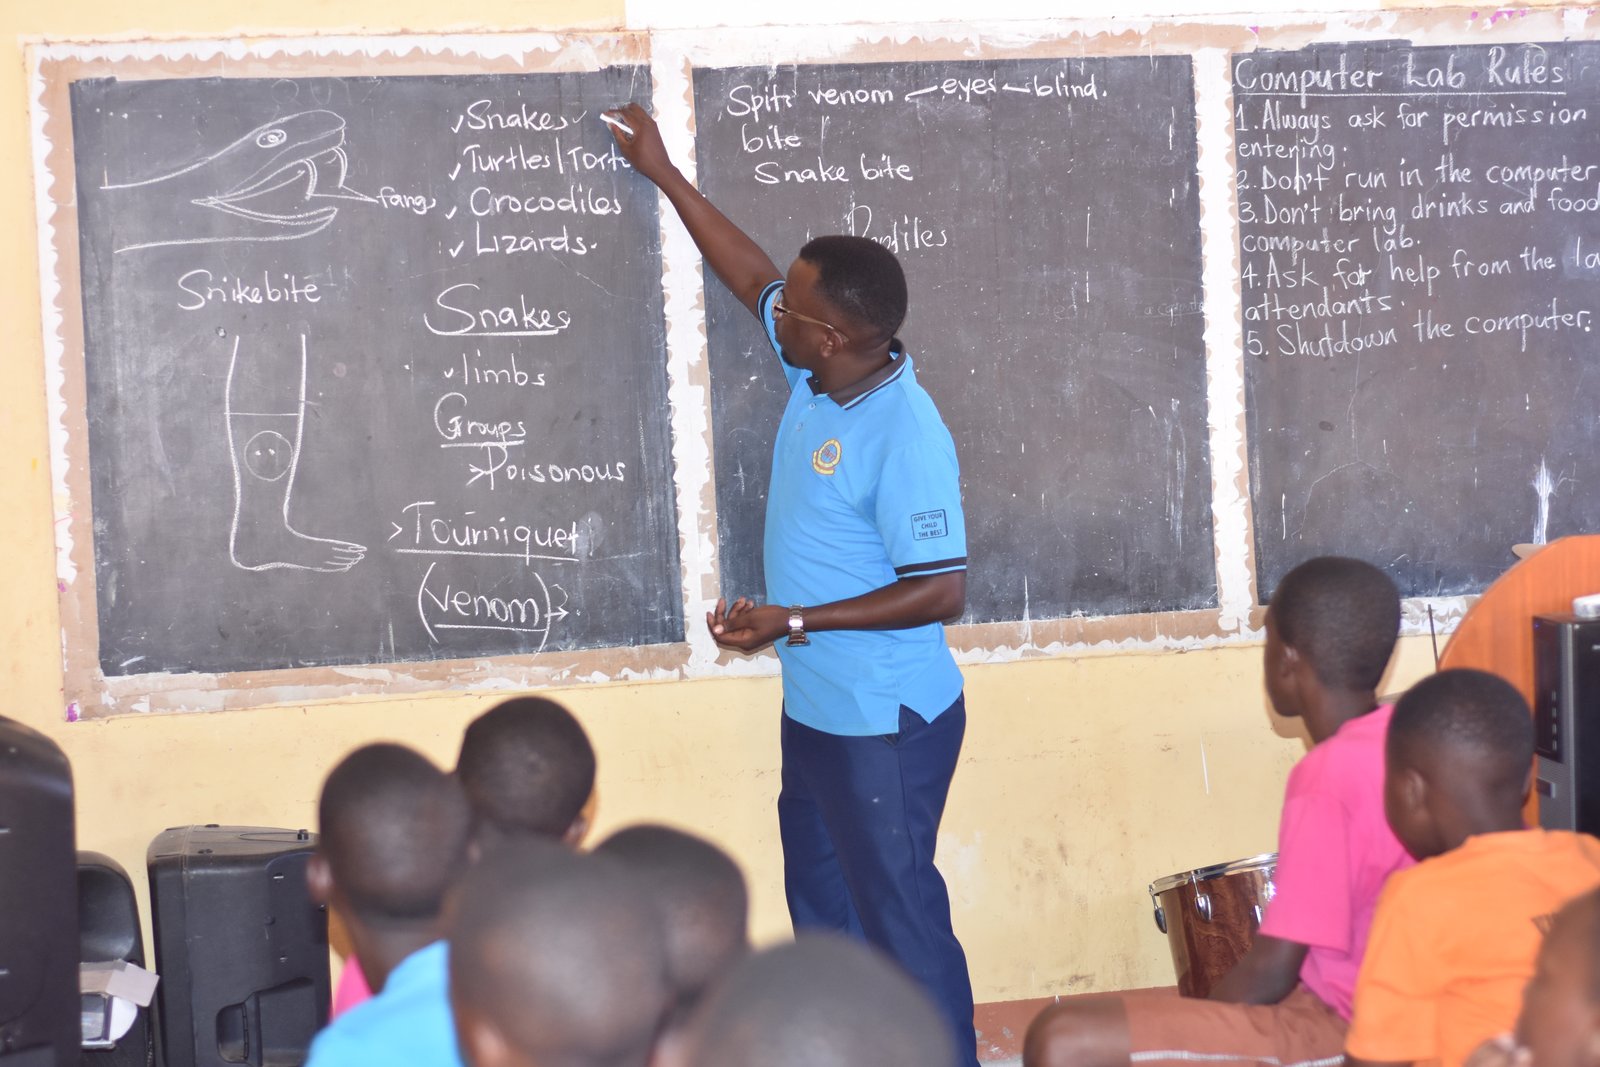 Snakes
Turtles/Torto
fangs
Crocodiles
Lizards.
Snikebite
Snakes
limbs
Groups
Poisonous
Tourniquet
(venom)
Spits venom – eyes – blind.
bite
Snake bite
Reptiles
Computer Lab Rules
1. Always ask for permission
entering.
2. Don't run in the computer
3. Don't bring drinks and food
computer lab.
4. Ask for help from the la
attendants.
5. Shutdown the computer.
GIVE YOUR
CHILD
THE BEST